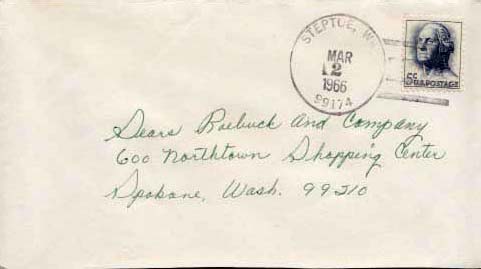 STEPTOE, WN.
MAR
2
1966
99174
5¢
U.S. POSTAGE
Sears Roebuck and Company
600 Northtown Shopping Center
Spokane, Wash. 99210